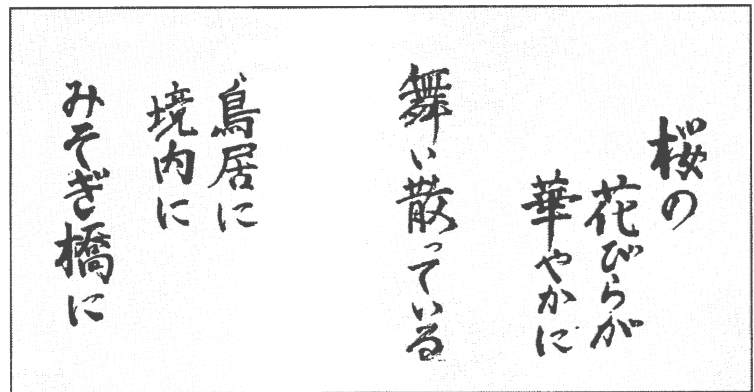 桜の
花びらが
華やかに
舞い散っている
鳥居に
境内に
みそぎ橋に